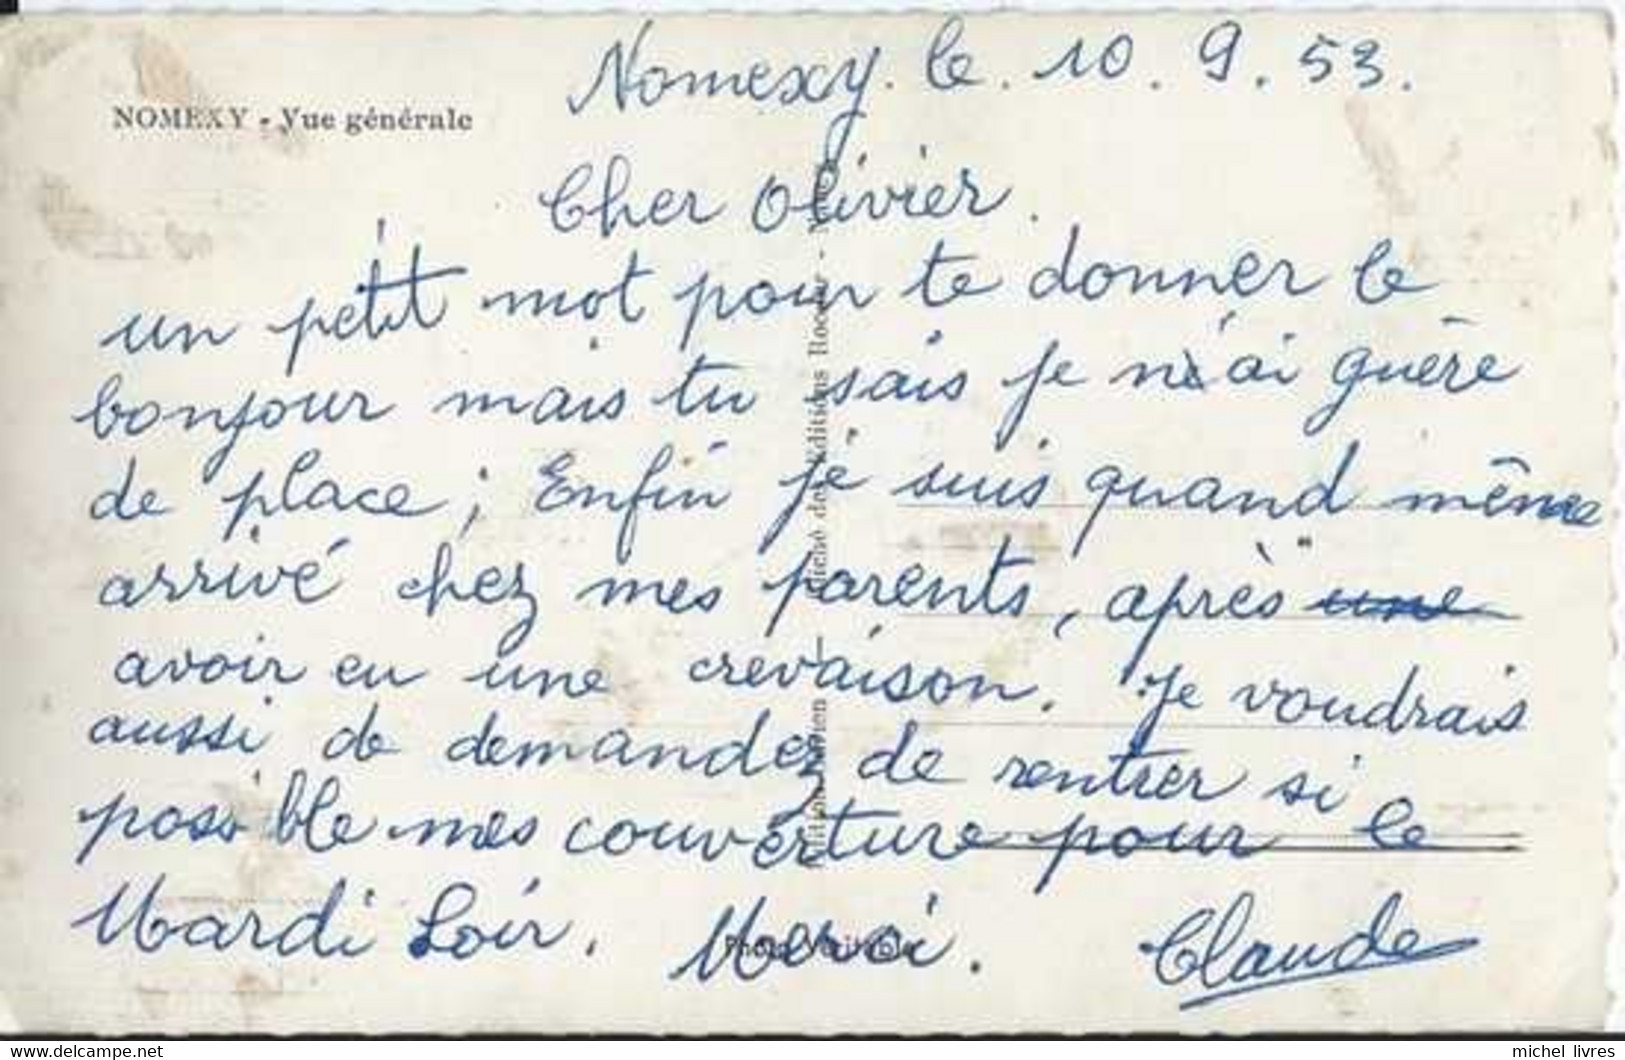 Nomexy. le. 10. 9. 53.
NOMEXY - Vue générale
Cher Olivier.
un petit mot pour te donner le
bonjour mais tu sais je n'ai guère
de place; Enfin je suis quand même
arrivé chez mes parents, après une
avoir eu une crevaison. Je voudrais
aussi de demandez de rentrer si
possible mes couverture pour le
Mardi Soir. Merci. Claude
Photo Véritable
www.delcampe.net
michel_livres